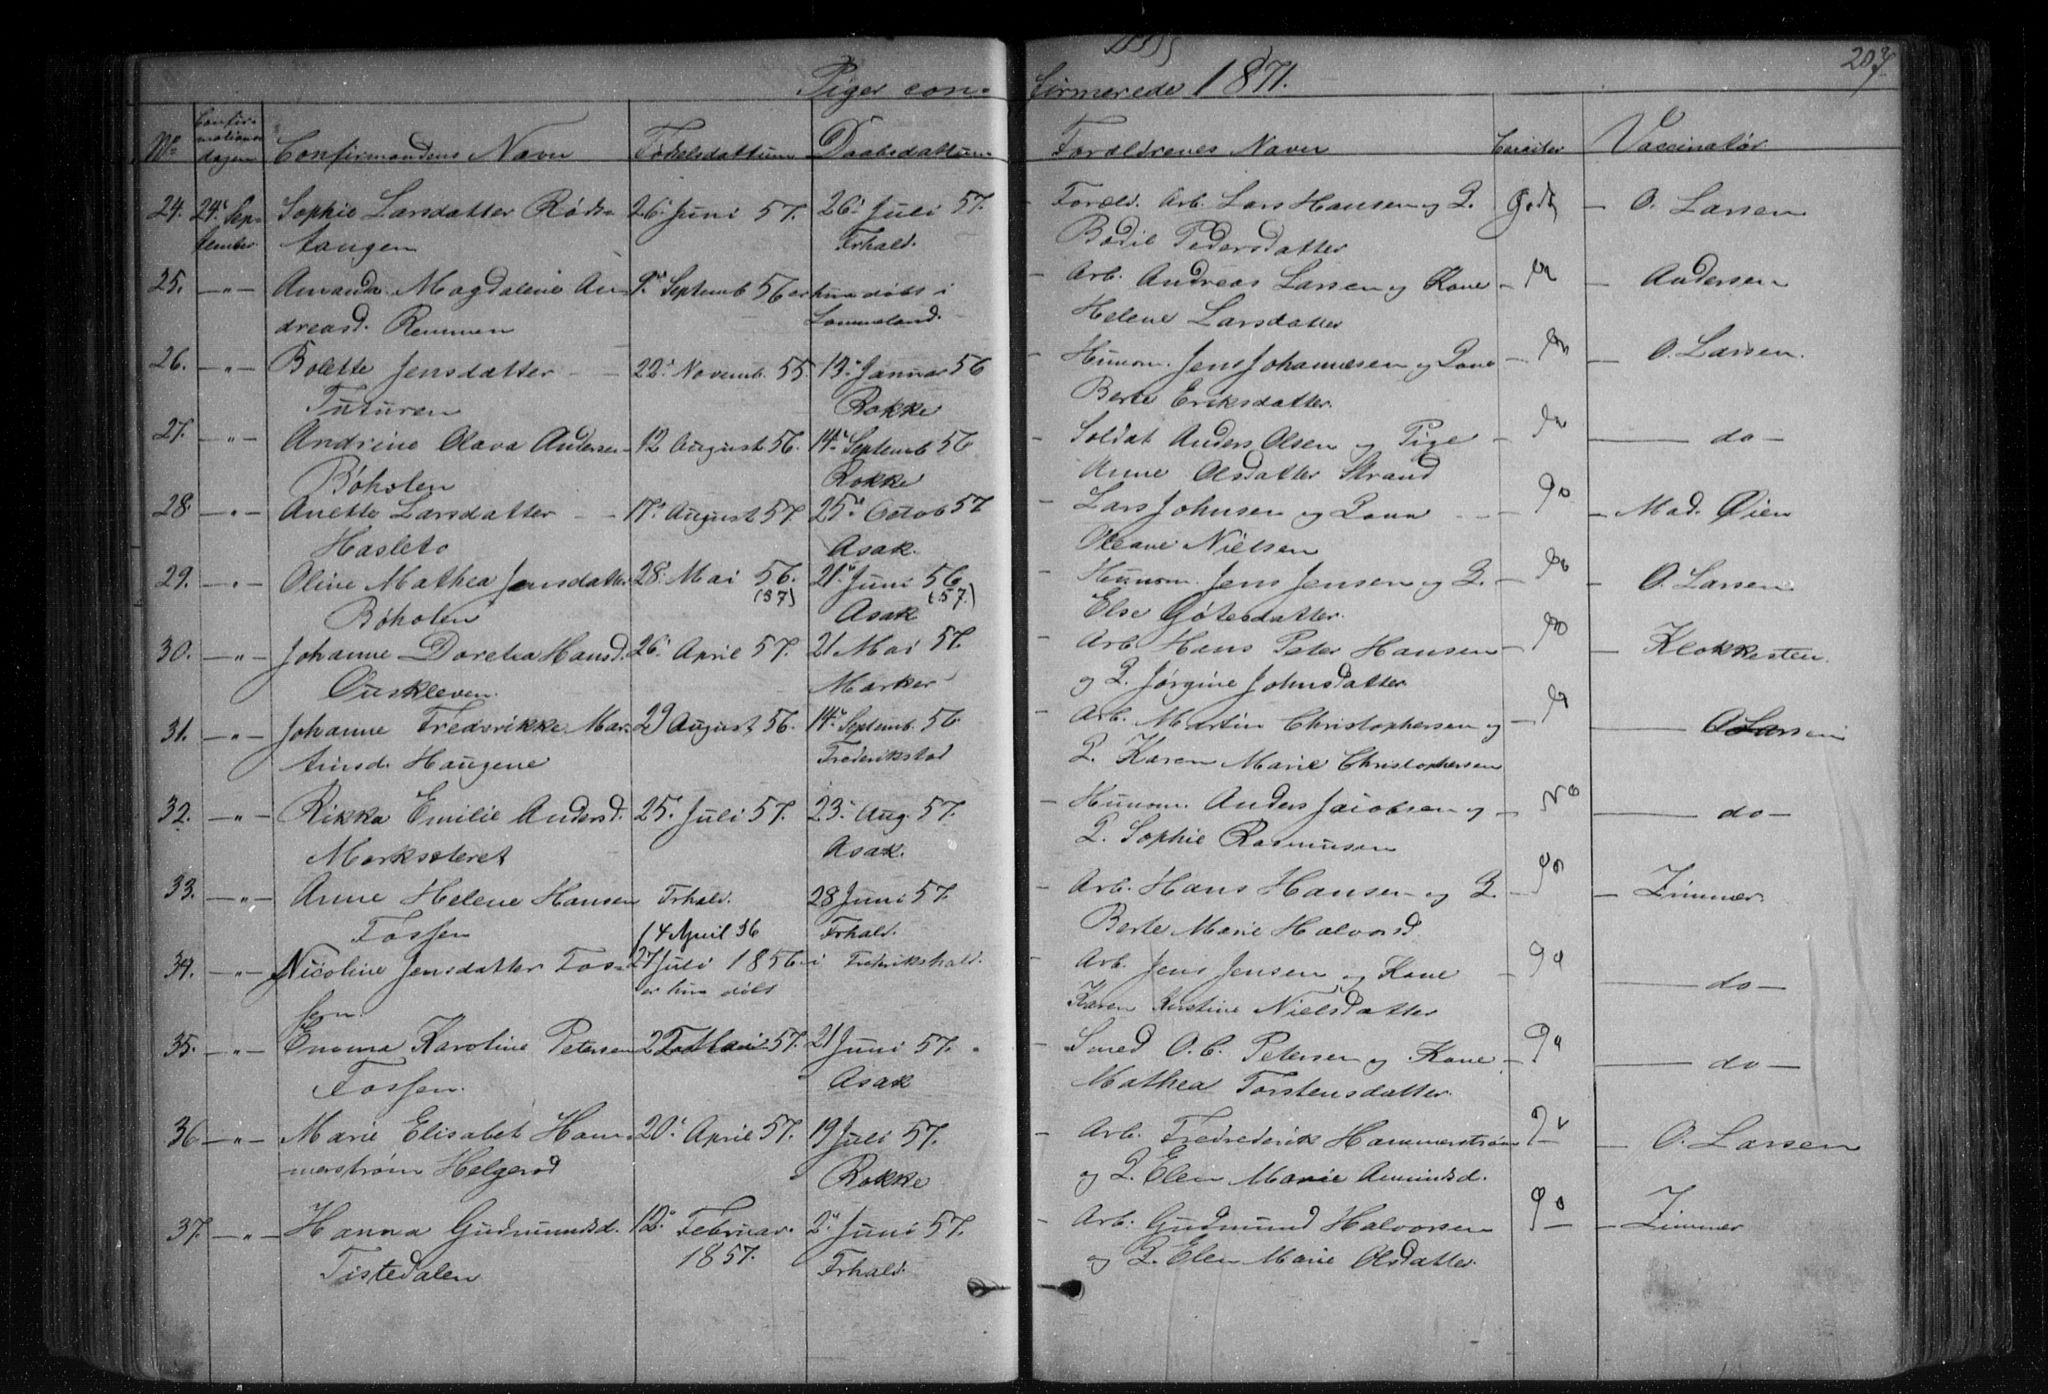 207
Piger con- firmerede 1871.
No Confirmationsdagen Confirmandens Navn Fødselsdattum Daabsdattum Forældrenes Navn Vaccinatør
24. 24. Sep- Sophie Larsdatter Røds- 26. Juni 57. 26. Juli 57. - Foræld. Arb. Lars Hansen og Q. Godt - O. Larsen
tember tangen Frhald. Bodil Pedersdatter
25. -"- Amanda Magdalene An- 9. Septemb 56 er hun døbt i - Arb. Andreas Larsen og Kone - Andersen
dreasd. Remmen Helene Larsdatter
26. -"- Bolette Jensdatter - 22. Novemb. 55. 13. Januar 56 - Huusm. Jens Johannesen og Q - O. Larsen.
Rokke Berte Eriksdatter.
27. -"- Andrine Olava Andersen 12 August 56. 14. Septemb 56 - Soldat Anders Olsen og Pige - do -
Bøholen Rokke Anne Olsdatter Strand
28. -"- Anette Larsdatter - 17. August 57. 25. Octob 57 - Lars Johnsen og - Mad. Øien
Hasleto Asak. Oleane Nielsen
29. -"- Oline Mathea Jensdatter 28. Mai 56. 21. Juni 56 - Huusm. Jens Jensen og Q. - O. Larsen
(57) (57.)
Bøholen Asak Else Götesdatter.
30. -"- Johanne Dorthea Hansd. 26. April 57. 21 Mai 57. - Arb. Hans Peter Hansen - Klokkesten.
Marker og Q. Jørgine Johnsdatter
31. -"- Johanne Fredrikke Mar- 29 August 56. 14. Septemb. 56 - Arb. Martin Christophersen og - O Larsen
tinsd. Haugene Frederikstad Q. Karen Marie Christophersen
32. -"- Rikka Emilie Andersd. 25. Juli 57. 23. Aug. 57. - Huusm. Anders Jacobsen og - do -
Asak. Q. Sophie Rasmussen
33. -"- Anne Helene Hansen Frhald. 28 Juni 57. - Arb. Hans Hansen og Q. - Zimmer
Fossen 14 April 56 Frhald. Berte Marie Halvorsd.
34. -"- Nicoline Jensdatter Fos- 27 Juli 1856 i Fredrikshald. - Arb. Jens Jensen og Kone - do -
sen. er hun døbt Karen Kirstine Nielsdatter
35. -"- Emma Karoline Petersen 22 Mai 57. 21 Juni 57. - Smed O. C. Petersen og Kone - do -
Fossen. Asak Mathea Torstensdatter.
36 -"- Marie Elisabet Ham- 20. April 57. 19 Juli 57. - Arb. Fredrederik Hammerstrøm - O. Larsen
merstrøm Helgerød Rokke og Q. Elen Marie Amundsd.
37. -"- Hanna Gudmundsd. 12. Februar. 2. Juni 57. - Arb. Gudmund Halvorsen - Zimmer
Tistedalen 1857. Frhald. og Q. Elen Marie Olsdatter.